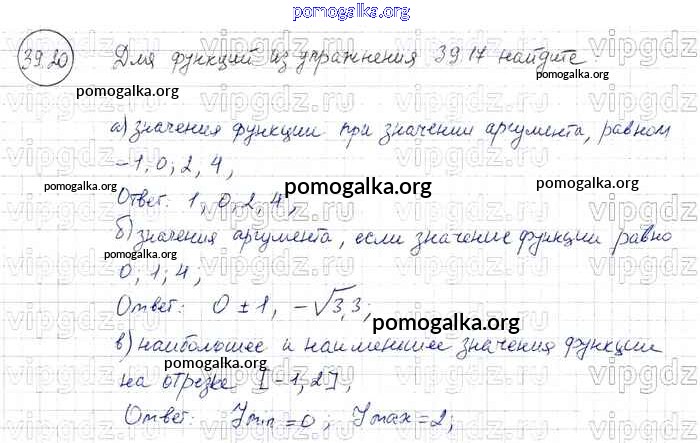 pomogalka.org
39.20 Для функций из упражнения 39.17 найдите:
pomogalka.org
а) значения функции при значении аргумента, равном
-1, 0, 2, 4,
pomogalka.org pomogalka.org pomogalka.org
Ответ: 1, 0, 2, 4;
б) значения аргумента, если значение функции равно
0; 1; 4;
Ответ: 0 ± 1, -√3, 3;
pomogalka.org
в) наибольшее и наименьшее значения функции
pomogalka.org pomogalka.org
на отрезке [-1, 2];
Ответ: Ymin = 0; Ymax = 2;
vipgdz.ru